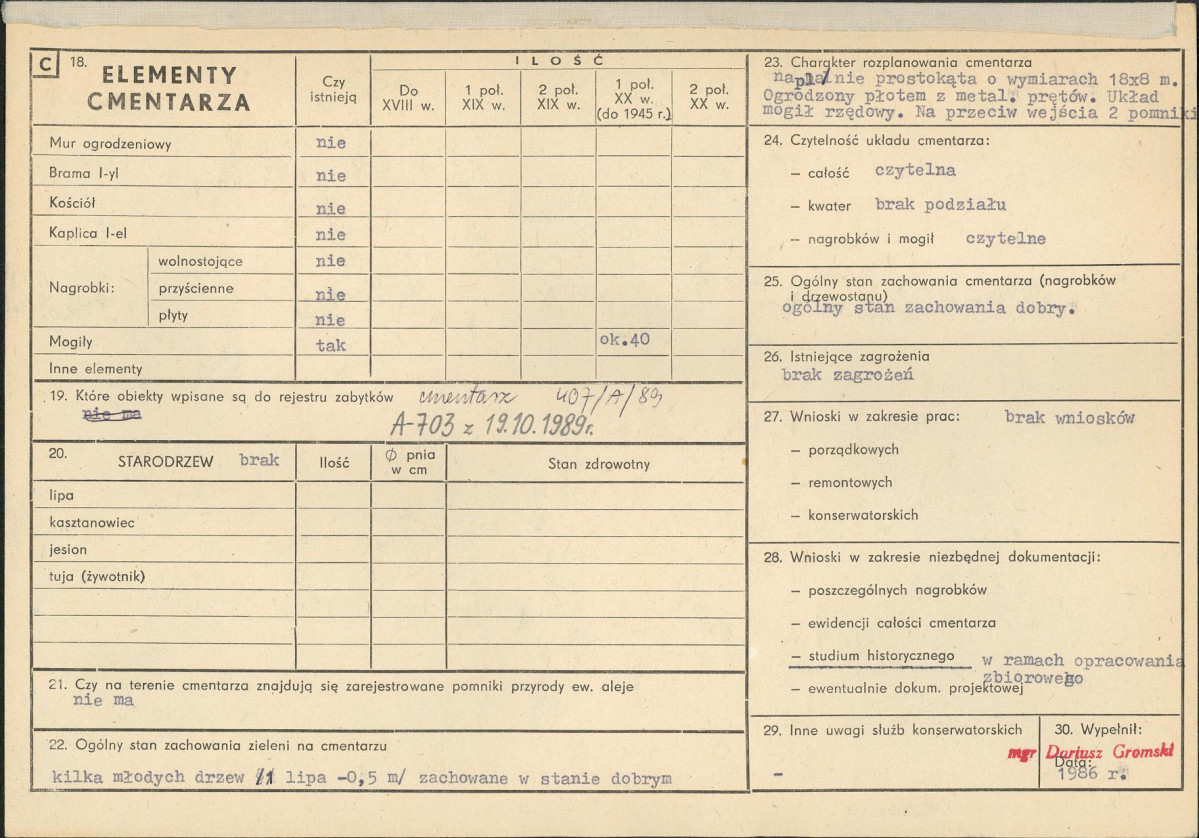 C 18.
ELEMENTY
CMENTARZA
Czy
istnieją
ILOŚĆ
Do
XVIII w.
1 poł.
XIX w.
2 poł.
XIX w.
1 poł.
XX w.
(do 1945 r.)
2 poł.
XX w.
Mur ogrodzeniowy nie
Brama I-yl nie
Kościół nie
Kaplica I-el nie
Nagrobki:
wolnostojące nie
przyścienne nie
płyty nie
Mogiły tak ok.40
Inne elementy
19. Które obiekty wpisane są do rejestru zabytków cmentarz 407/A/89
nie ma A-703 z 19.10.1989r.
20.
STARODRZEW brak
Ilość
Ø pnia
w cm
Stan zdrowotny
lipa
kasztanowiec
jesion
tuja (żywotnik)
21. Czy na terenie cmentarza znajdują się zarejestrowane pomniki przyrody ew. aleje
nie ma
22. Ogólny stan zachowania zieleni na cmentarzu
kilka młodych drzew /1 lipa -0,5 m/ zachowane w stanie dobrym
23. Charakter rozplanowania cmentarza
na planie prostokąta o wymiarach 18x8 m.
Ogrodzony płotem z metal. prętów. Układ
mogił rzędowy. Na przeciw wejścia 2 pomniki
24. Czytelność układu cmentarza:
– całość czytelna
– kwater brak podziału
– nagrobków i mogił czytelne
25. Ogólny stan zachowania cmentarza (nagrobków
i drzewostanu)
ogólny stan zachowania dobry.
26. Istniejące zagrożenia
brak zagrożeń
27. Wnioski w zakresie prac: brak wniosków
– porządkowych
– remontowych
– konserwatorskich
28. Wnioski w zakresie niezbędnej dokumentacji:
– poszczególnych nagrobków
– ewidencji całości cmentarza
– studium historycznego w ramach opracowania
zbiorowego
– ewentualnie dokum. projektowej
29. Inne uwagi służb konserwatorskich
-
30. Wypełnił:
mgr Dariusz Gromski
Data:
1986 r.